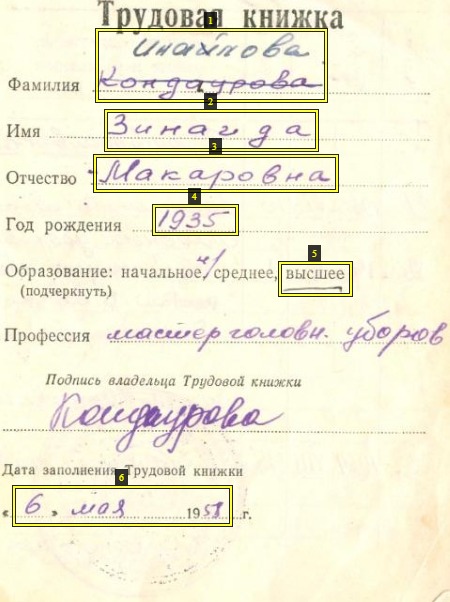 Трудовая книжка
Фамилия Кондаурова
Имя Зинаида
Отчество Макаровна
Год рождения 1935
Образование: начальное, н/среднее, высшее
(подчеркнуть)
Профессия мастер головн. уборов
Подпись владельца Трудовой книжки
Кондаурова
Дата заполнения Трудовой книжки
« 6 » мая 195 г.
1
2
3
4
5
6